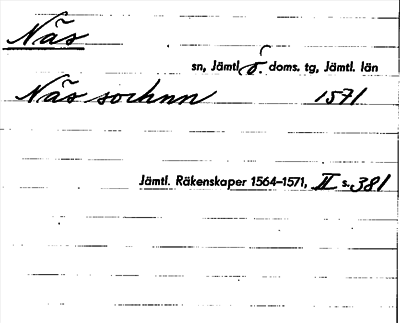 Näs
sn, Jämtl. ö. doms. tg, Jämtl. län
Näs sochnn 1571
Jämtl. Räkenskaper 1564–1571, II s. 381